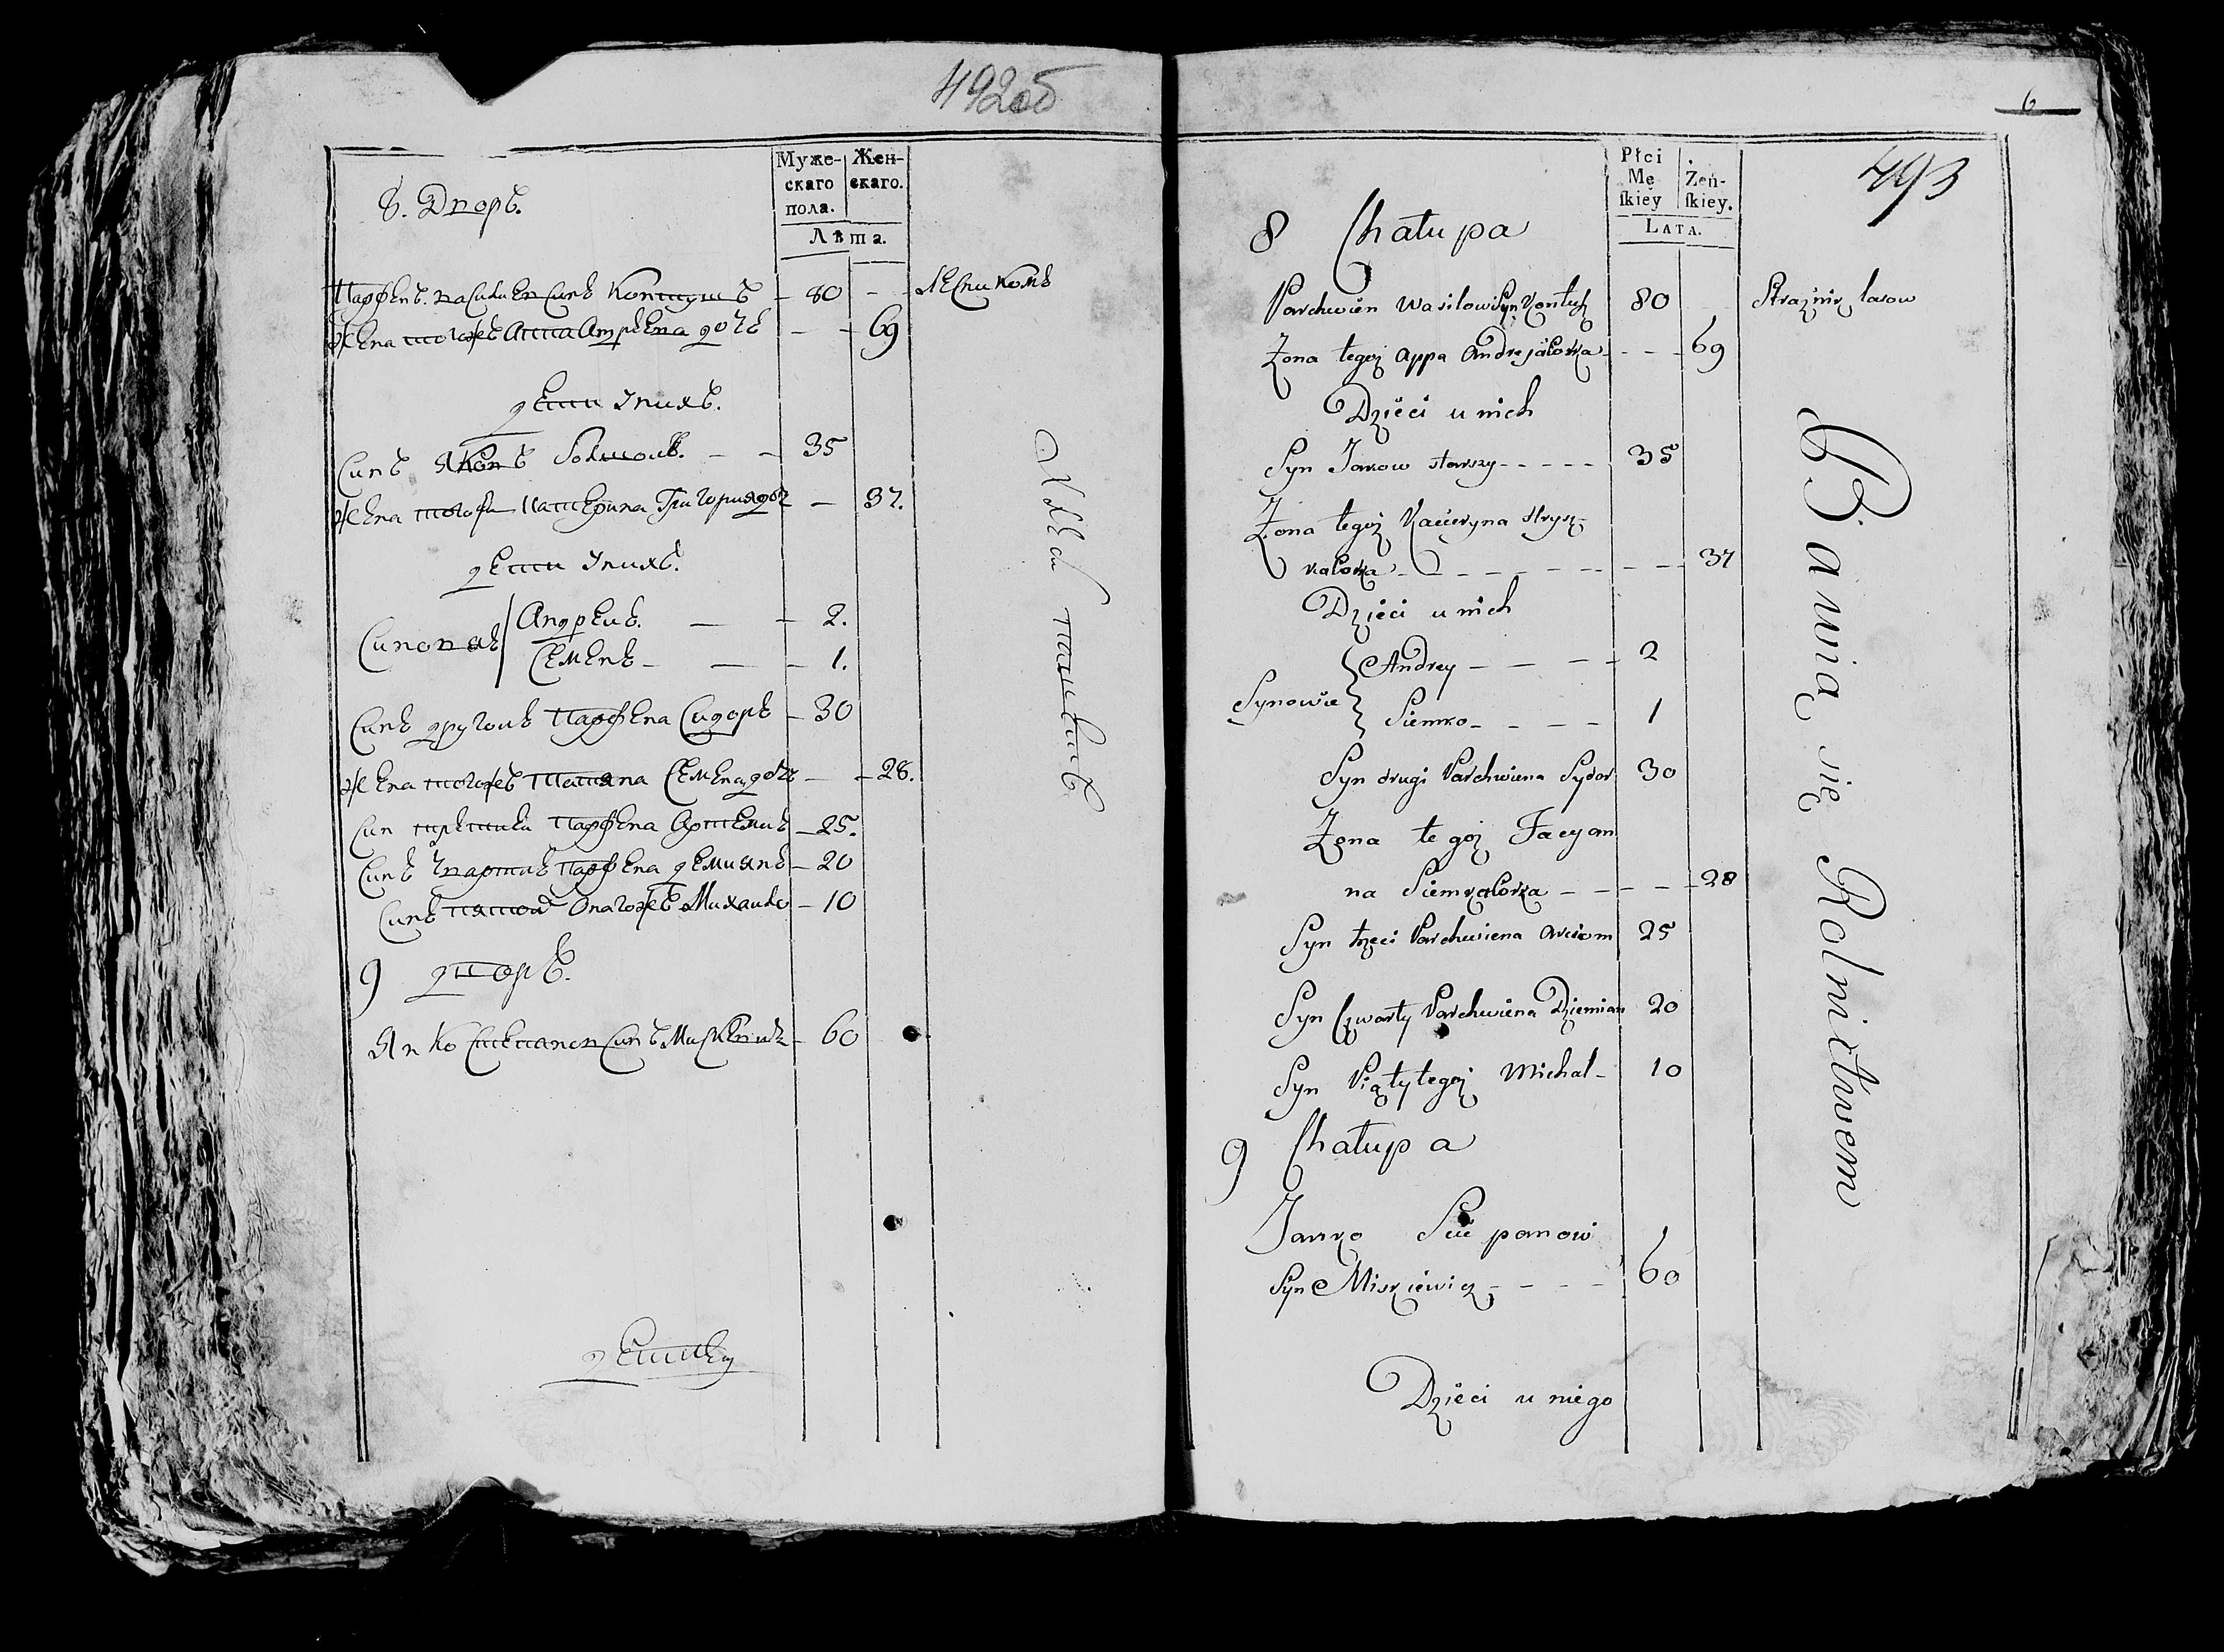 492об
Муже-
скаго
пола.
Жен-
скаго.
Лѣта.
8. Дворъ.
Парфенъ. василиевъ синъ Контушъ - 80 - - Лесникомъ
жена тогожъ Аппа Андреева дочъ - - 69
дети унихъ.
Синъ Яковъ болшоиъ. - - 35
жена тогожъ Катерина Григориядоч - 37.
дети унихъ.
Синовя
Андреиъ. - - 2.
Семенъ - - - 1.
Синъ другоиъ Парфена Сидоръ - 30
жена тогожъ Татяна Семенадочъ - - 28.
Син третии Парфена Артемиъ - 25.
Синъ Чвартиъ Парфена демиянъ - 20
Синъ пятои Михаило - 10
9 дворъ.
Янко Степановъ Синъ Мискевичъ - 60
дети
6
493
Płci
Mę
ſkiey
Żeń-
ſkiey.
Lata.
8 Chałupa
Parchwien Wasilow Syn Kontusz 80 Strażnik lasow
Żona tegoż Appa Andrejałowka - - - 69
Dzieci u nich
Syn Jakow starszy - - - - - 35
Żona tegoż Kacieryna Hrysz-
kałowka - - - - - - - - - 37
Dzieci u nich
Synowie
Andrey - - - - 2
Siemko - - - - 1
Syn drugi Parchwiena Sydor 30
Żona tegoż Taćyan
na Siemkałowka - - - - - 28
Syn trzeci Parchwiena Arciom 25
Syn Czwarty Parchwiena Dziemian 20
Syn Piąty tegoż Michał - 10
9 Chałupa
Janko Sciepanow
Syn Miskiewicz - - - - 60
Dzieci u niego
Bawią się Rolnictwem